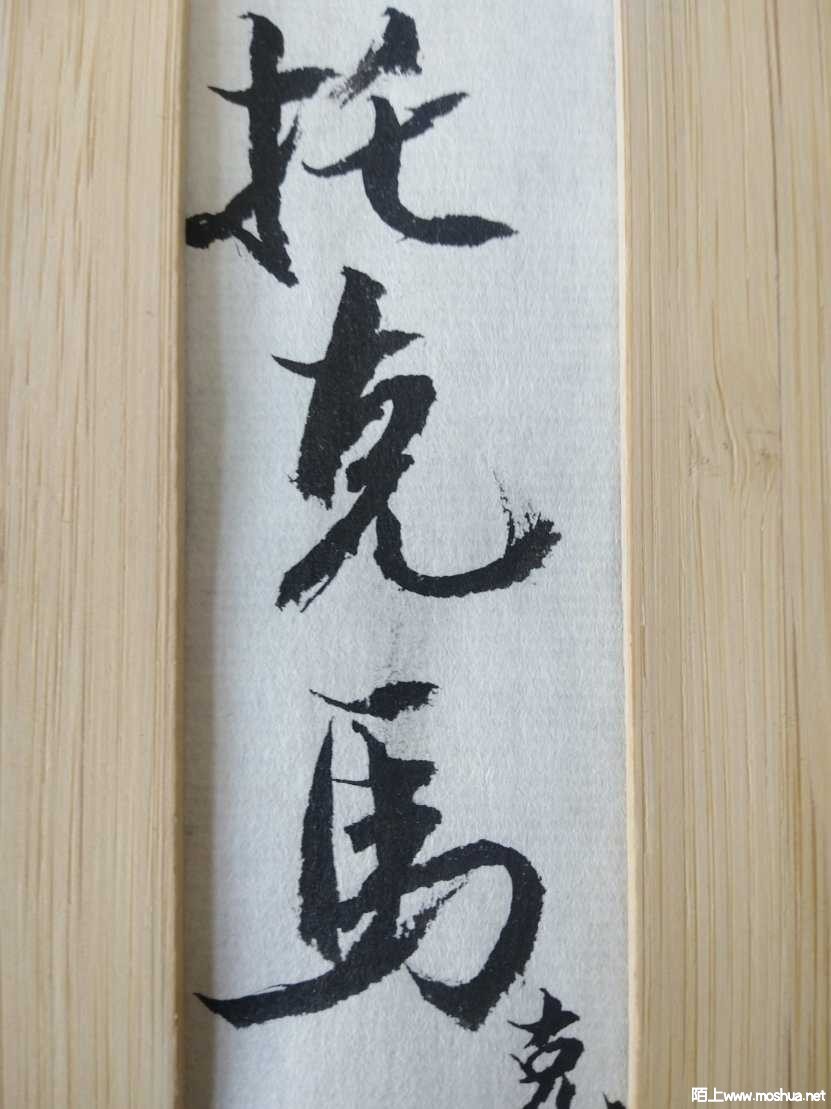 托克馬
克
陌上www.moshua.net